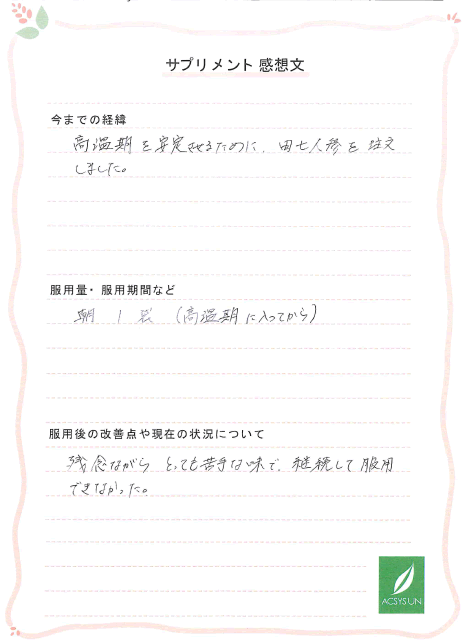 サプリメント 感想文
今までの経緯
高温期を安定させるために、田七人参を注文
しました。
服用量・服用期間など
朝 1袋 (高温期に入ってから)
服用後の改善点や現在の状況について
残念ながら とっても苦手な味で、継続して服用
できなかった。
ACSYSUN